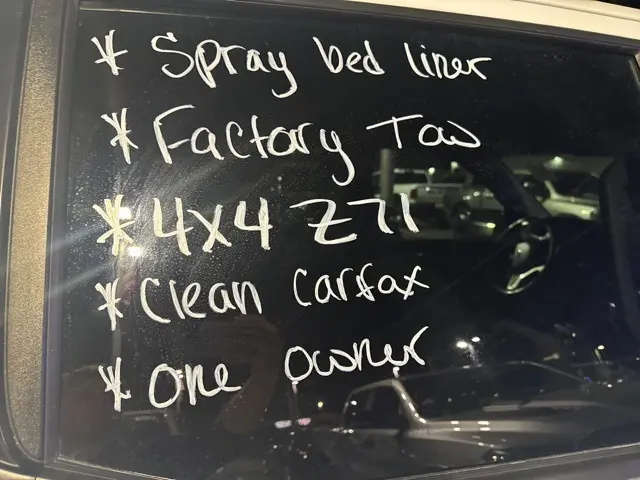 * Spray bed liner
* Factory Tow
* 4x4 Z71
* Clean Carfax
* One owner